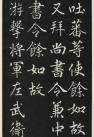 吐蕃等使餘如故
又拜尚書令兼中
書令餘如故
將擊將軍左武衛